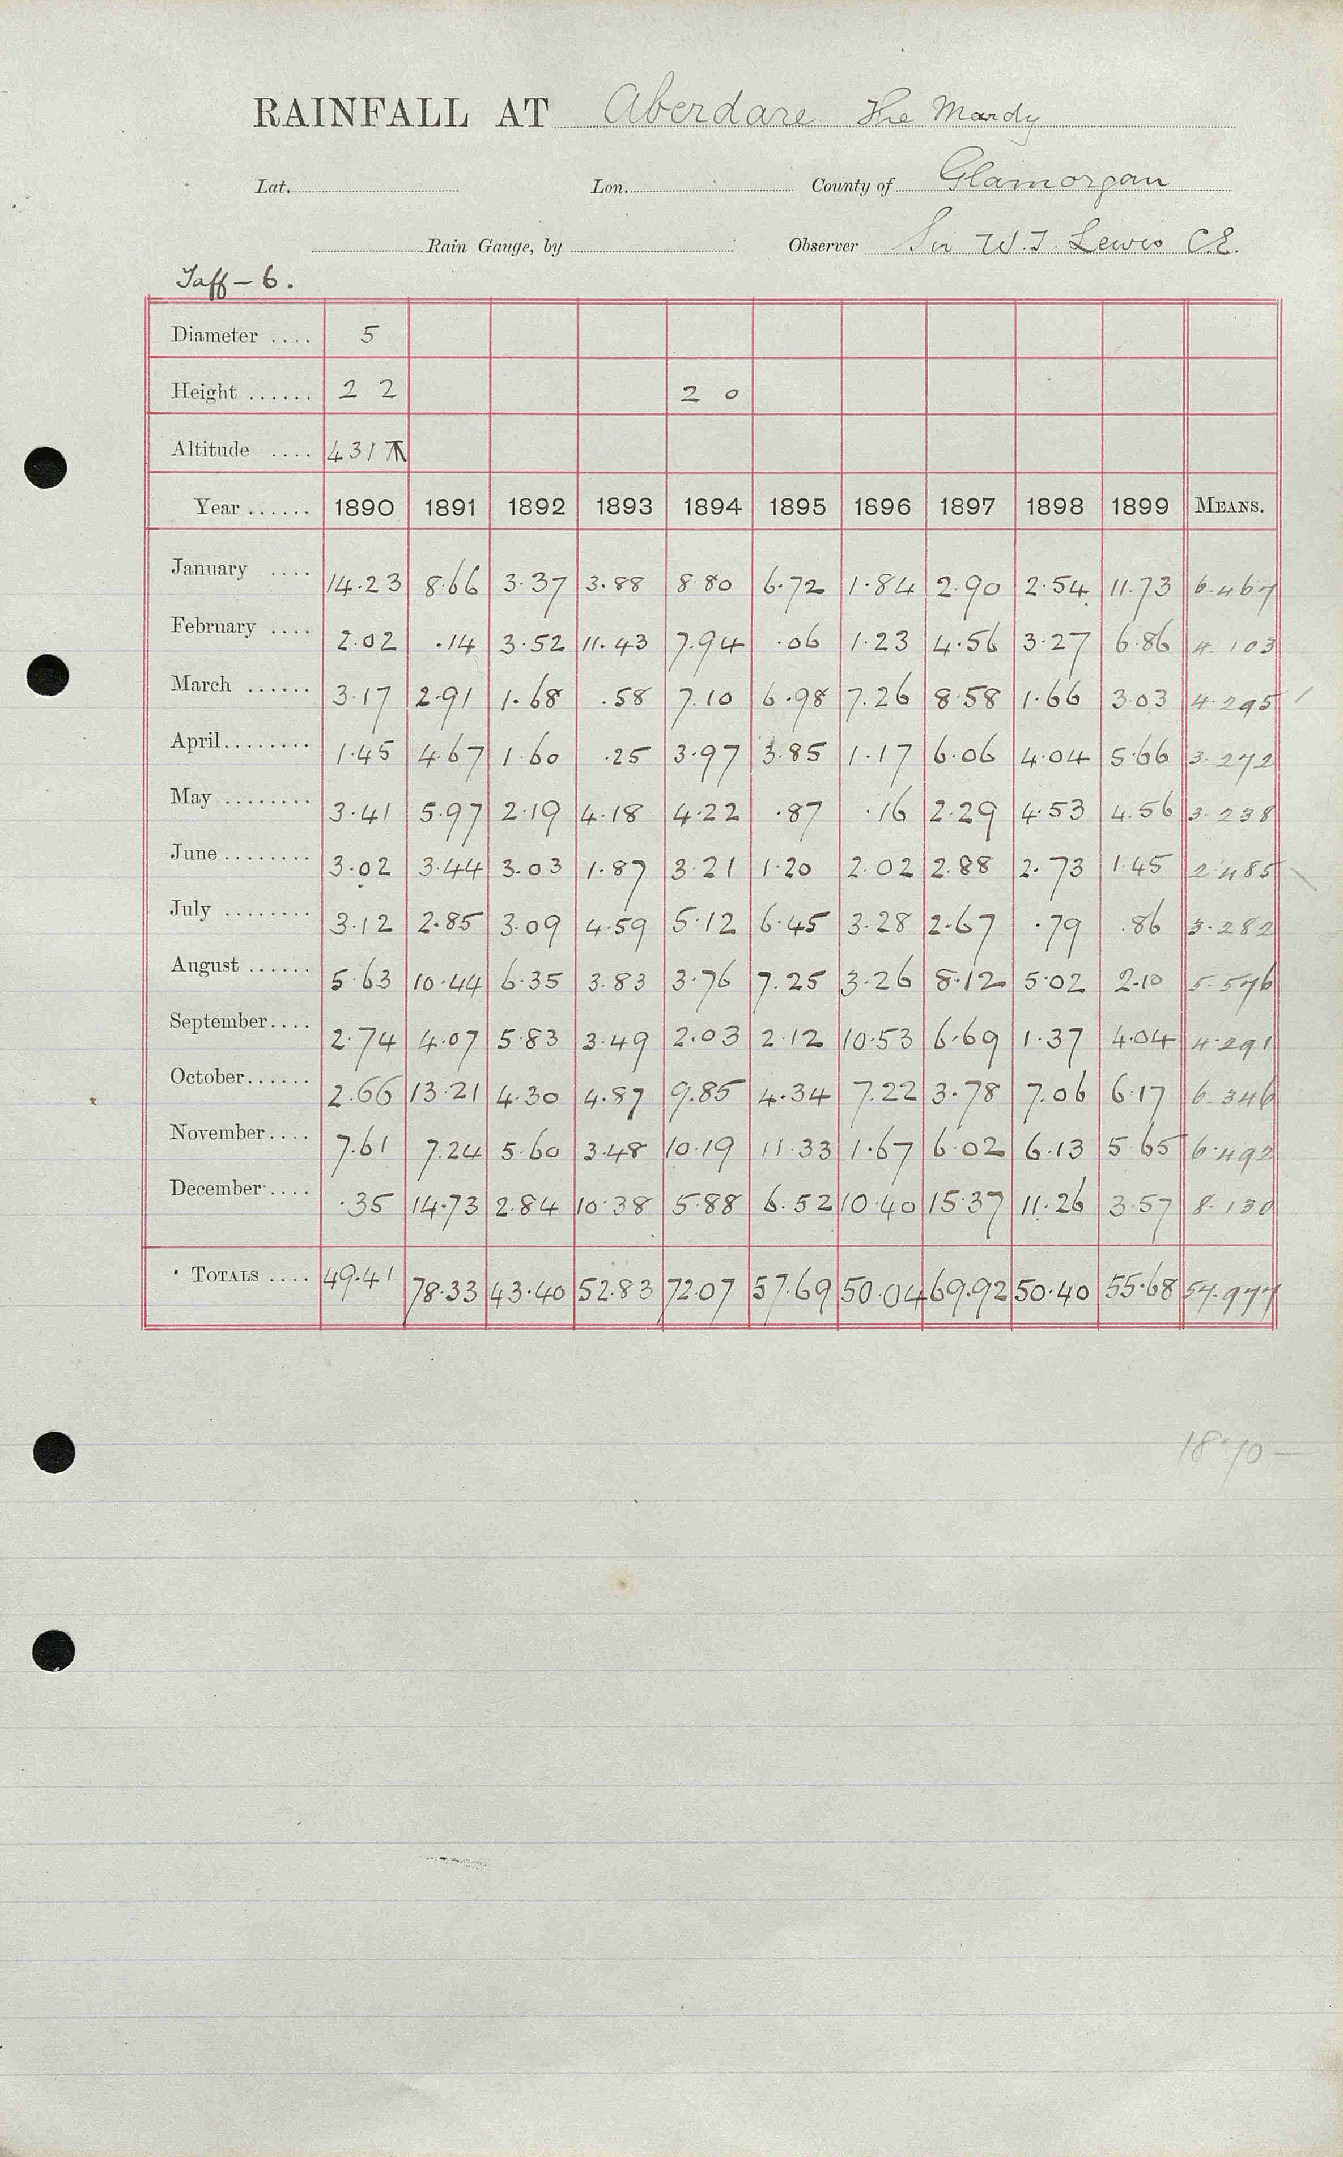 RAINFALL AT Aberdare The Mardy
Lat. Lon. County of Glamorgan
Rain Gauge, by Observer Sir W.T. Lewis C.E.
Taff - 6.
Diameter .... 5
Height ...... 2 2 2 0
Altitude .... 431
Year ...... 1890 1891 1892 1893 1894 1895 1896 1897 1898 1899 MEANS.
January .... 14.23 8.66 3.37 3.88 8.80 6.72 1.84 2.90 2.54 11.73 6.467
February .... 2.02 .14 3.52 11.43 7.94 .06 1.23 4.56 3.27 6.86 4.103
March ...... 3.17 2.91 1.68 .58 7.10 6.98 7.26 8.58 1.66 3.03 4.295
April........ 1.45 4.67 1.60 .25 3.97 3.85 1.17 6.06 4.04 5.66 3.272
May ........ 3.41 5.97 2.19 4.18 4.22 .87 .16 2.29 4.53 4.56 3.238
June ........ 3.02 3.44 3.03 1.87 3.21 1.20 2.02 2.88 2.73 1.45 2.485
July ........ 3.12 2.85 3.09 4.59 5.12 6.45 3.28 2.67 .79 .86 3.282
August ...... 5.63 10.44 6.35 3.83 3.76 7.25 3.26 8.12 5.02 2.10 5.576
September.... 2.74 4.07 5.83 3.49 2.03 2.12 10.53 6.69 1.37 4.04 4.291
October...... 2.66 13.21 4.30 4.87 9.85 4.34 7.22 3.78 7.06 6.17 6.346
November.... 7.61 7.24 5.60 3.48 10.19 11.33 1.67 6.02 6.13 5.65 6.492
December.... .35 14.73 2.84 10.38 5.88 6.52 10.40 15.37 11.26 3.57 8.130
TOTALS .... 49.41 78.33 43.40 52.83 72.07 57.69 50.04 69.92 50.40 55.68 57.977